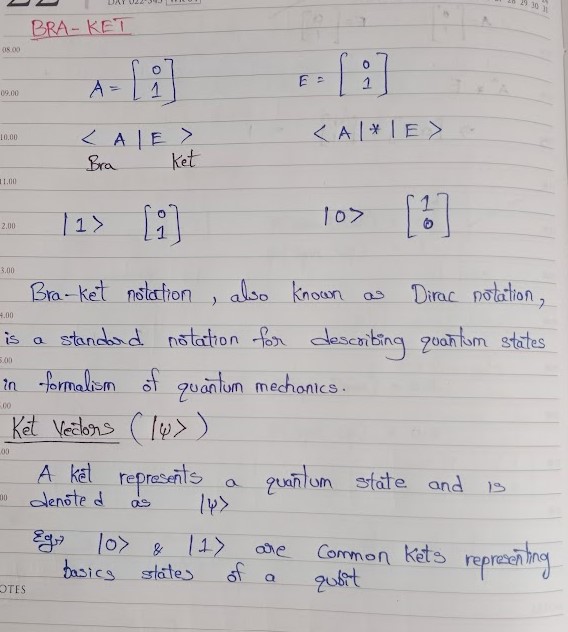 BRA-KET
08.00
A = [0 1]
E = [0 1]
09.00
10.00
< A | E >
< A | * | E >
Bra Ket
11.00
|1> [0 1]
|0> [1 0]
2.00
3.00
Bra-ket notation, also known as Dirac notation,
4.00
is a standard notation for describing quantum states
5.00
in formalism of quantum mechanics.
.00
Ket Vectors (|ψ>)
00
A ket represents a quantum state and is
00
denoted as |ψ>
Eg→ |0> & |1> are common kets representing
basics states of a qubit
OTES